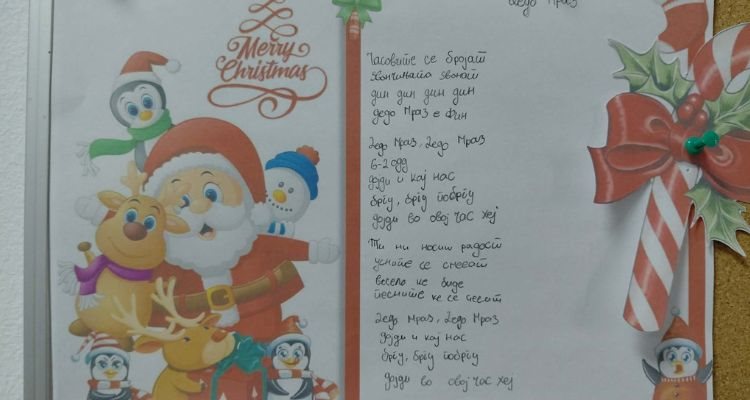 Дедо Мраз
Merry
Christmas
Часовите се бројат
ѕвончињата ѕвонат
дин дин дин дин
дедо Мраз е Фин
Дедо Мраз, Дедо Мраз
6-2 одд
дојди и кај нас
бргу, бргу побргу
дојди во овој час хеј
Ти ни носиш радост
усните се смеат
весело ќе биде
песните ќе се пеат
Дедо Мраз, Дедо Мраз
дојди и кај нас
бргу, бргу побргу
дојди во овој час хеј